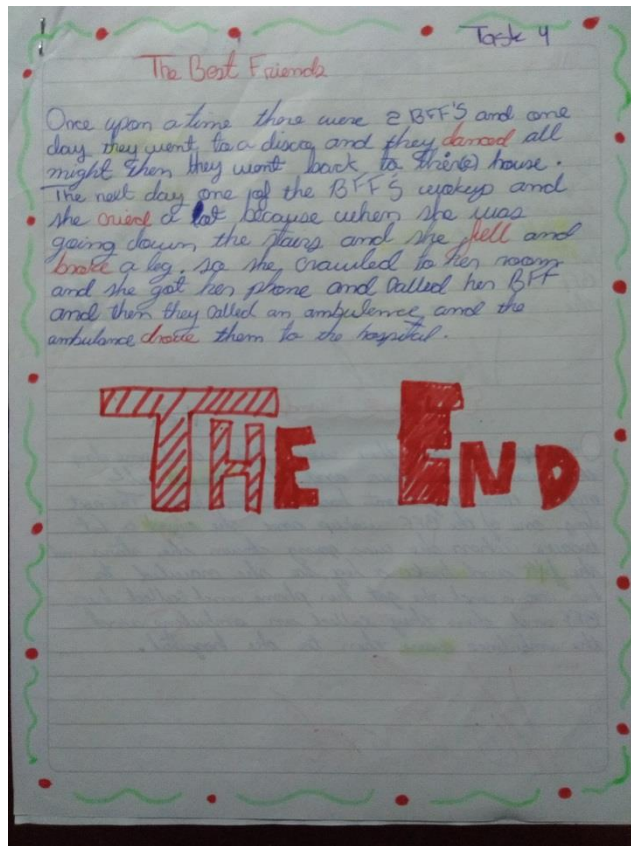 Task 4
The Best Friends
Once upon a time there were 2 BFF'S and one
day they went to a disco and they danced all
might then they went back to there house.
The next day one of the BFF'S wokeup and
she cried a lot because when she was
going down the stairs and she fell and
broke a leg. so she crawled to her room
and she got her phone and called her BFF
and then they called an ambulence, and the
ambulance drove them to the hospital.
THE END